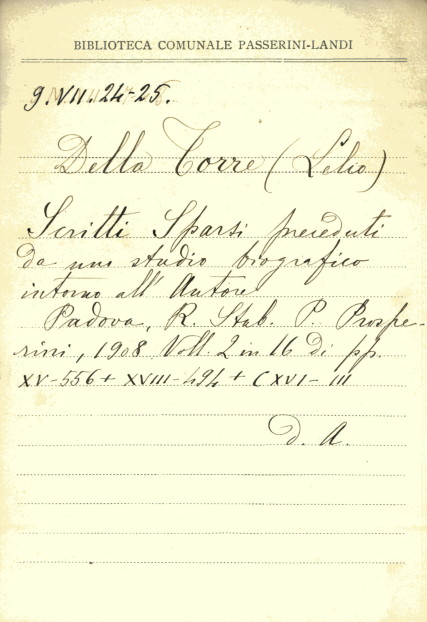 BIBLIOTECA COMUNALE PASSERINI-LANDI
9.VII.24-25.
Della Torre (Lelio)
Scritti Sparsi preceduti
da uno studio biografico
intorno all' Autore
Padova, R. Stab. P. Prospe-
rini, 1908 Voll. 2 in 16 di pp.
XV-556 + XVIII-494 + CXVI-III
d. A.